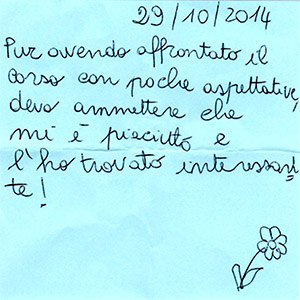 29/10/2014
Pur avendo affrontato il
corso con poche aspettative,
devo ammettere che
mi è piaciuto e
l'ho trovato interessan
te!